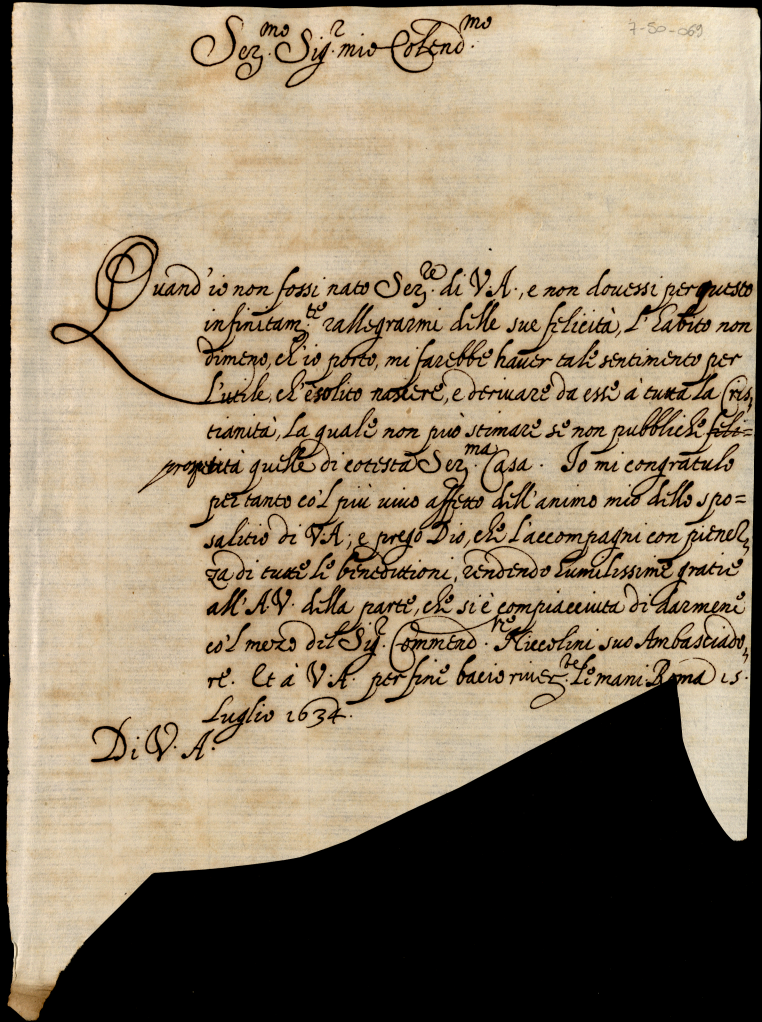 7-50-069
Ser.mo Sig.r mio Colend.mo
Quand'io non fossi nato Ser.re di V.A., e non douessi perquesto
infinitam.te rallegrarmi delle sue felicità, l'habito non
dimeno, ch'io porto, mi farebbe hauer tale sentimento per
l'utile, ch'è solito nascere, e deriuare da esse à tutta la Cris,
tianità, la quale non può stimare se non pubbliche feli=
prosperità quelle di cotesta Ser.ma Casa. Io mi congratulo
pertanto co'l più uiuo affetto dell'animo mio dello spo=
salitio di V.A., e prego Dio, che l'accompagni con pienez,
za di tutte le benedittioni, rendendo humilissime gratie
all'A.V. della parte, che si è compiacciuta di darmene
co'l mezo del Sig.r Commend.re Niccolini suo Ambasciado,
re. Et à V.A. per fine bacio riuer.te le mani. Roma 15.
Luglio 1634.
Di V. A.